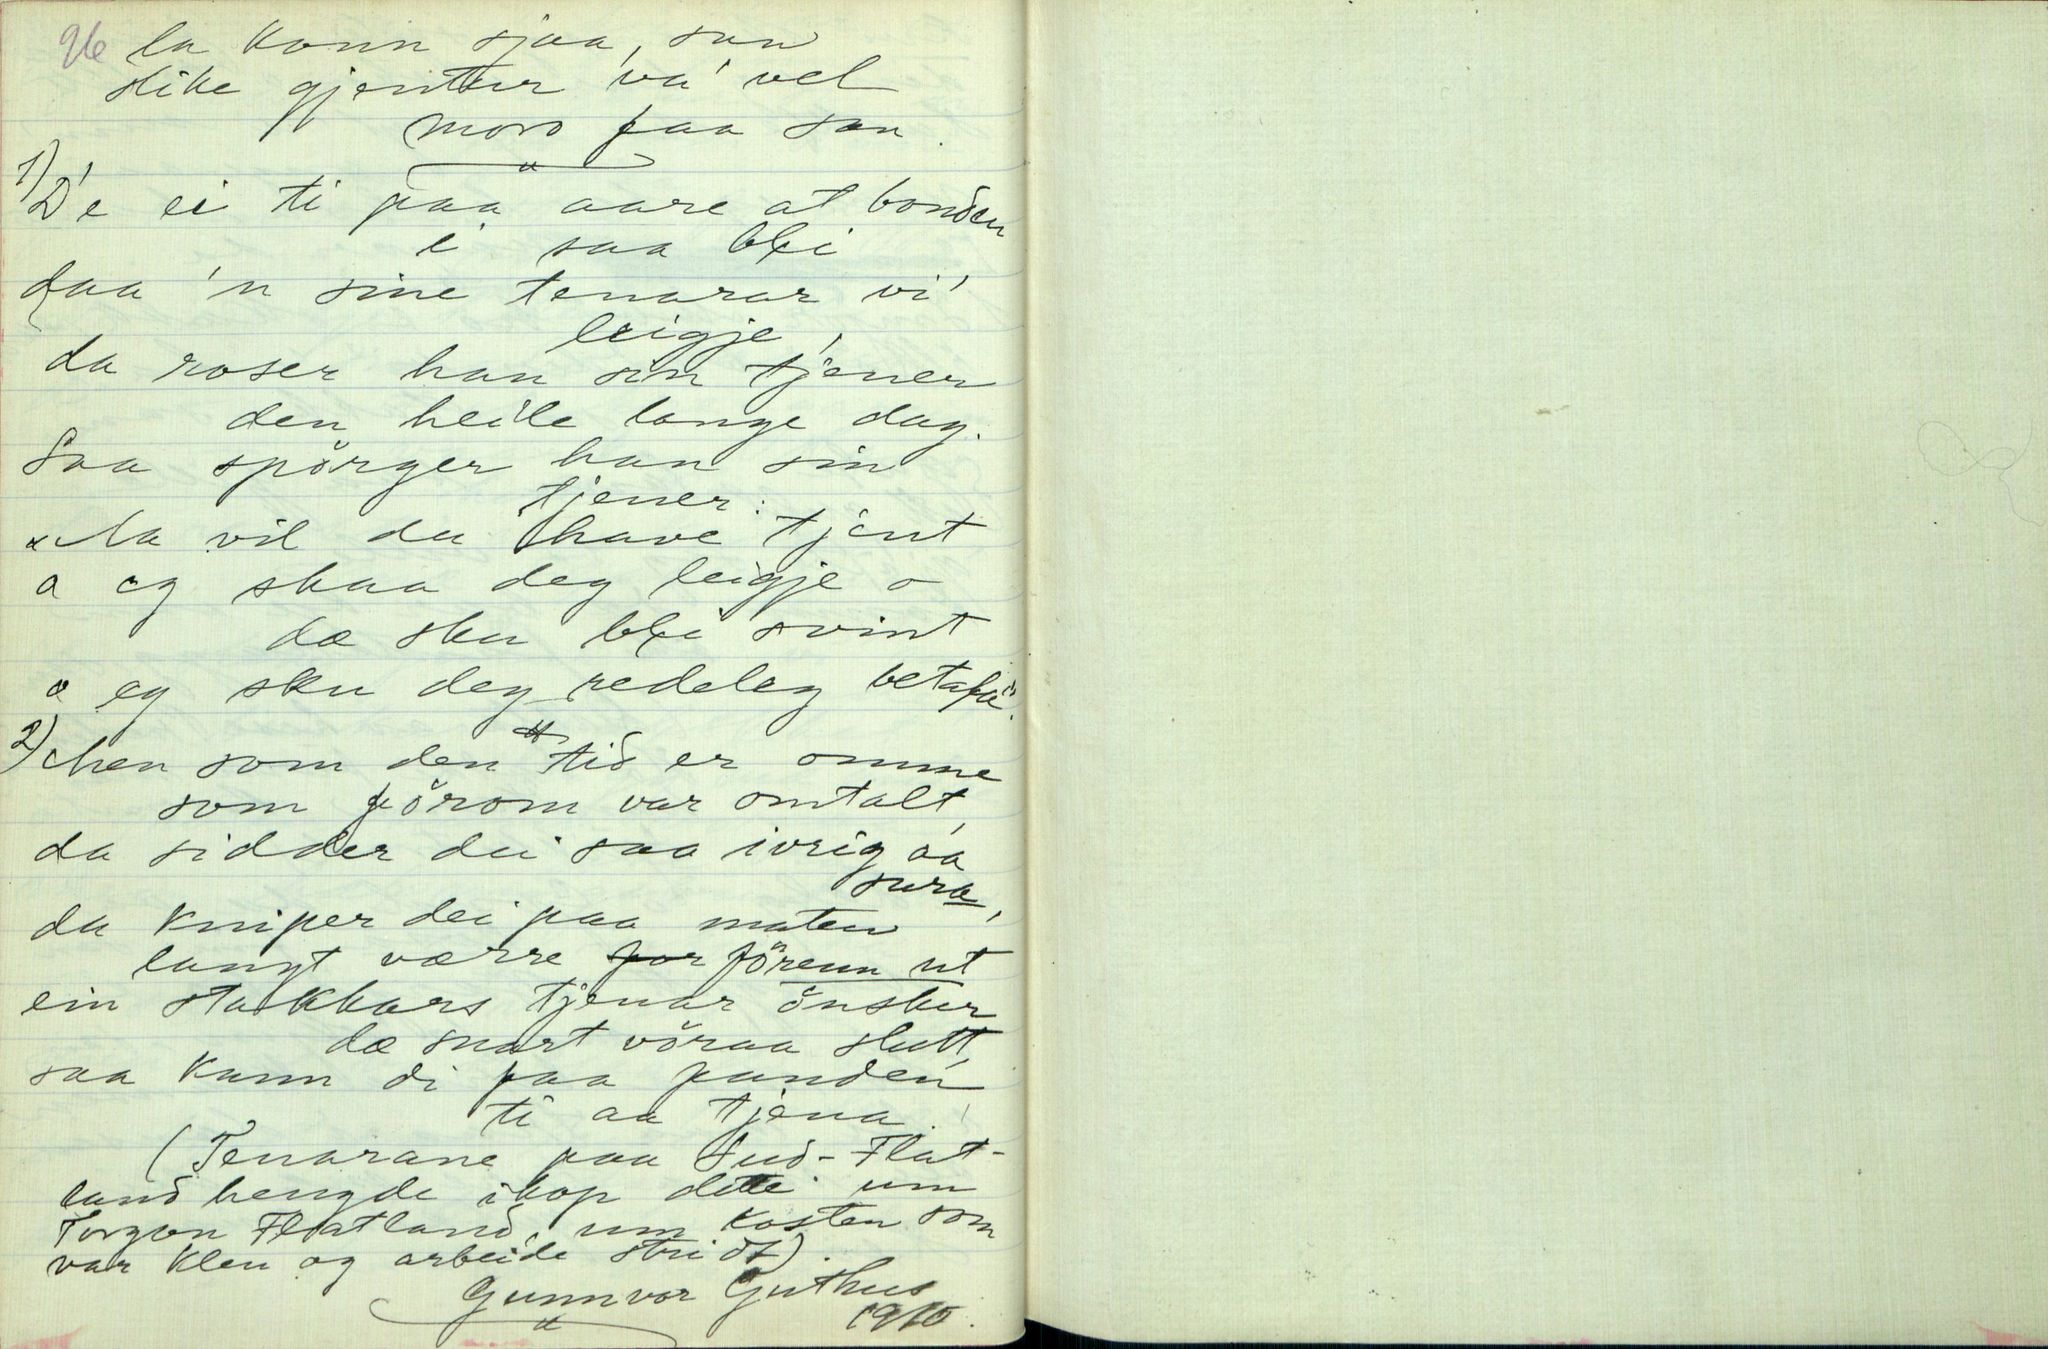 96 la konn sjaa, san
slike gjentur 'va' vel
moro paa san.
1) D'e ei ti paa aare at bonden
i saa blei
daa 'n sine tenarar vi'
leigje,
da roser han sin tjener
den heile lange dag.
Saa spörger han sin
tjener:
"Na vil du have tjent
o eg skaa deg leigje o
dæ sku blei svint
o eg sku deg redeleg betala".
2) Men som den tid er omme
som förom var omtalt,
da sidder dei saa ivrig aa
sura,
da kniper dei paa maten
langt værre for förenn ut
ein stakkars tjenar önsker
dæ snart vöraa slutt,
saa kann di paa fanden
ti aa tjena.
(Tenarane paa Sud-Flat-
land hengde ihop dette um
Torgon Flatland, um kosten som
var klen og arbeide stridt).
Gunnvor Guthus
1910.